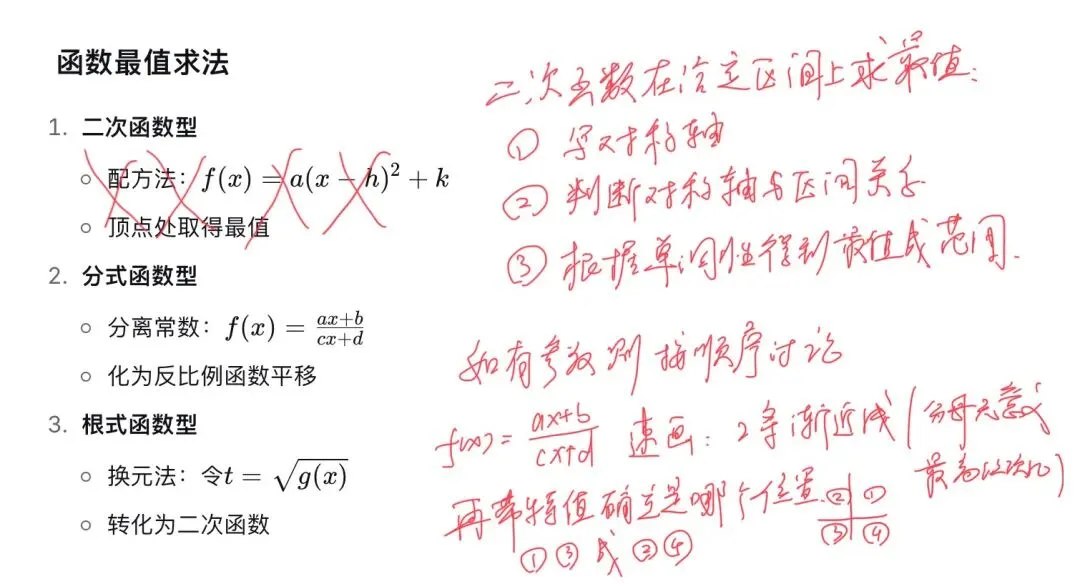 函数最值求法
1. 二次函数型
配方法：f(x) = a(x − h)² + k
顶点处取得最值
2. 分式函数型
分离常数：f(x) = \frac{ax+b}{cx+d}
化为反比例函数平移
3. 根式函数型
换元法：令t = \sqrt{g(x)}
转化为二次函数
二次函数在给定区间上求最值：
① 写对称轴
② 判断对称轴与区间关系
③ 根据单调性得到最值或范围.
如有参数则按顺序讨论
f(x) = \frac{ax+b}{cx+d} 速画：2条渐近线(分母无意义
最高次
再带特值确定是哪个位置 ② ①
③ ④
①③或②④